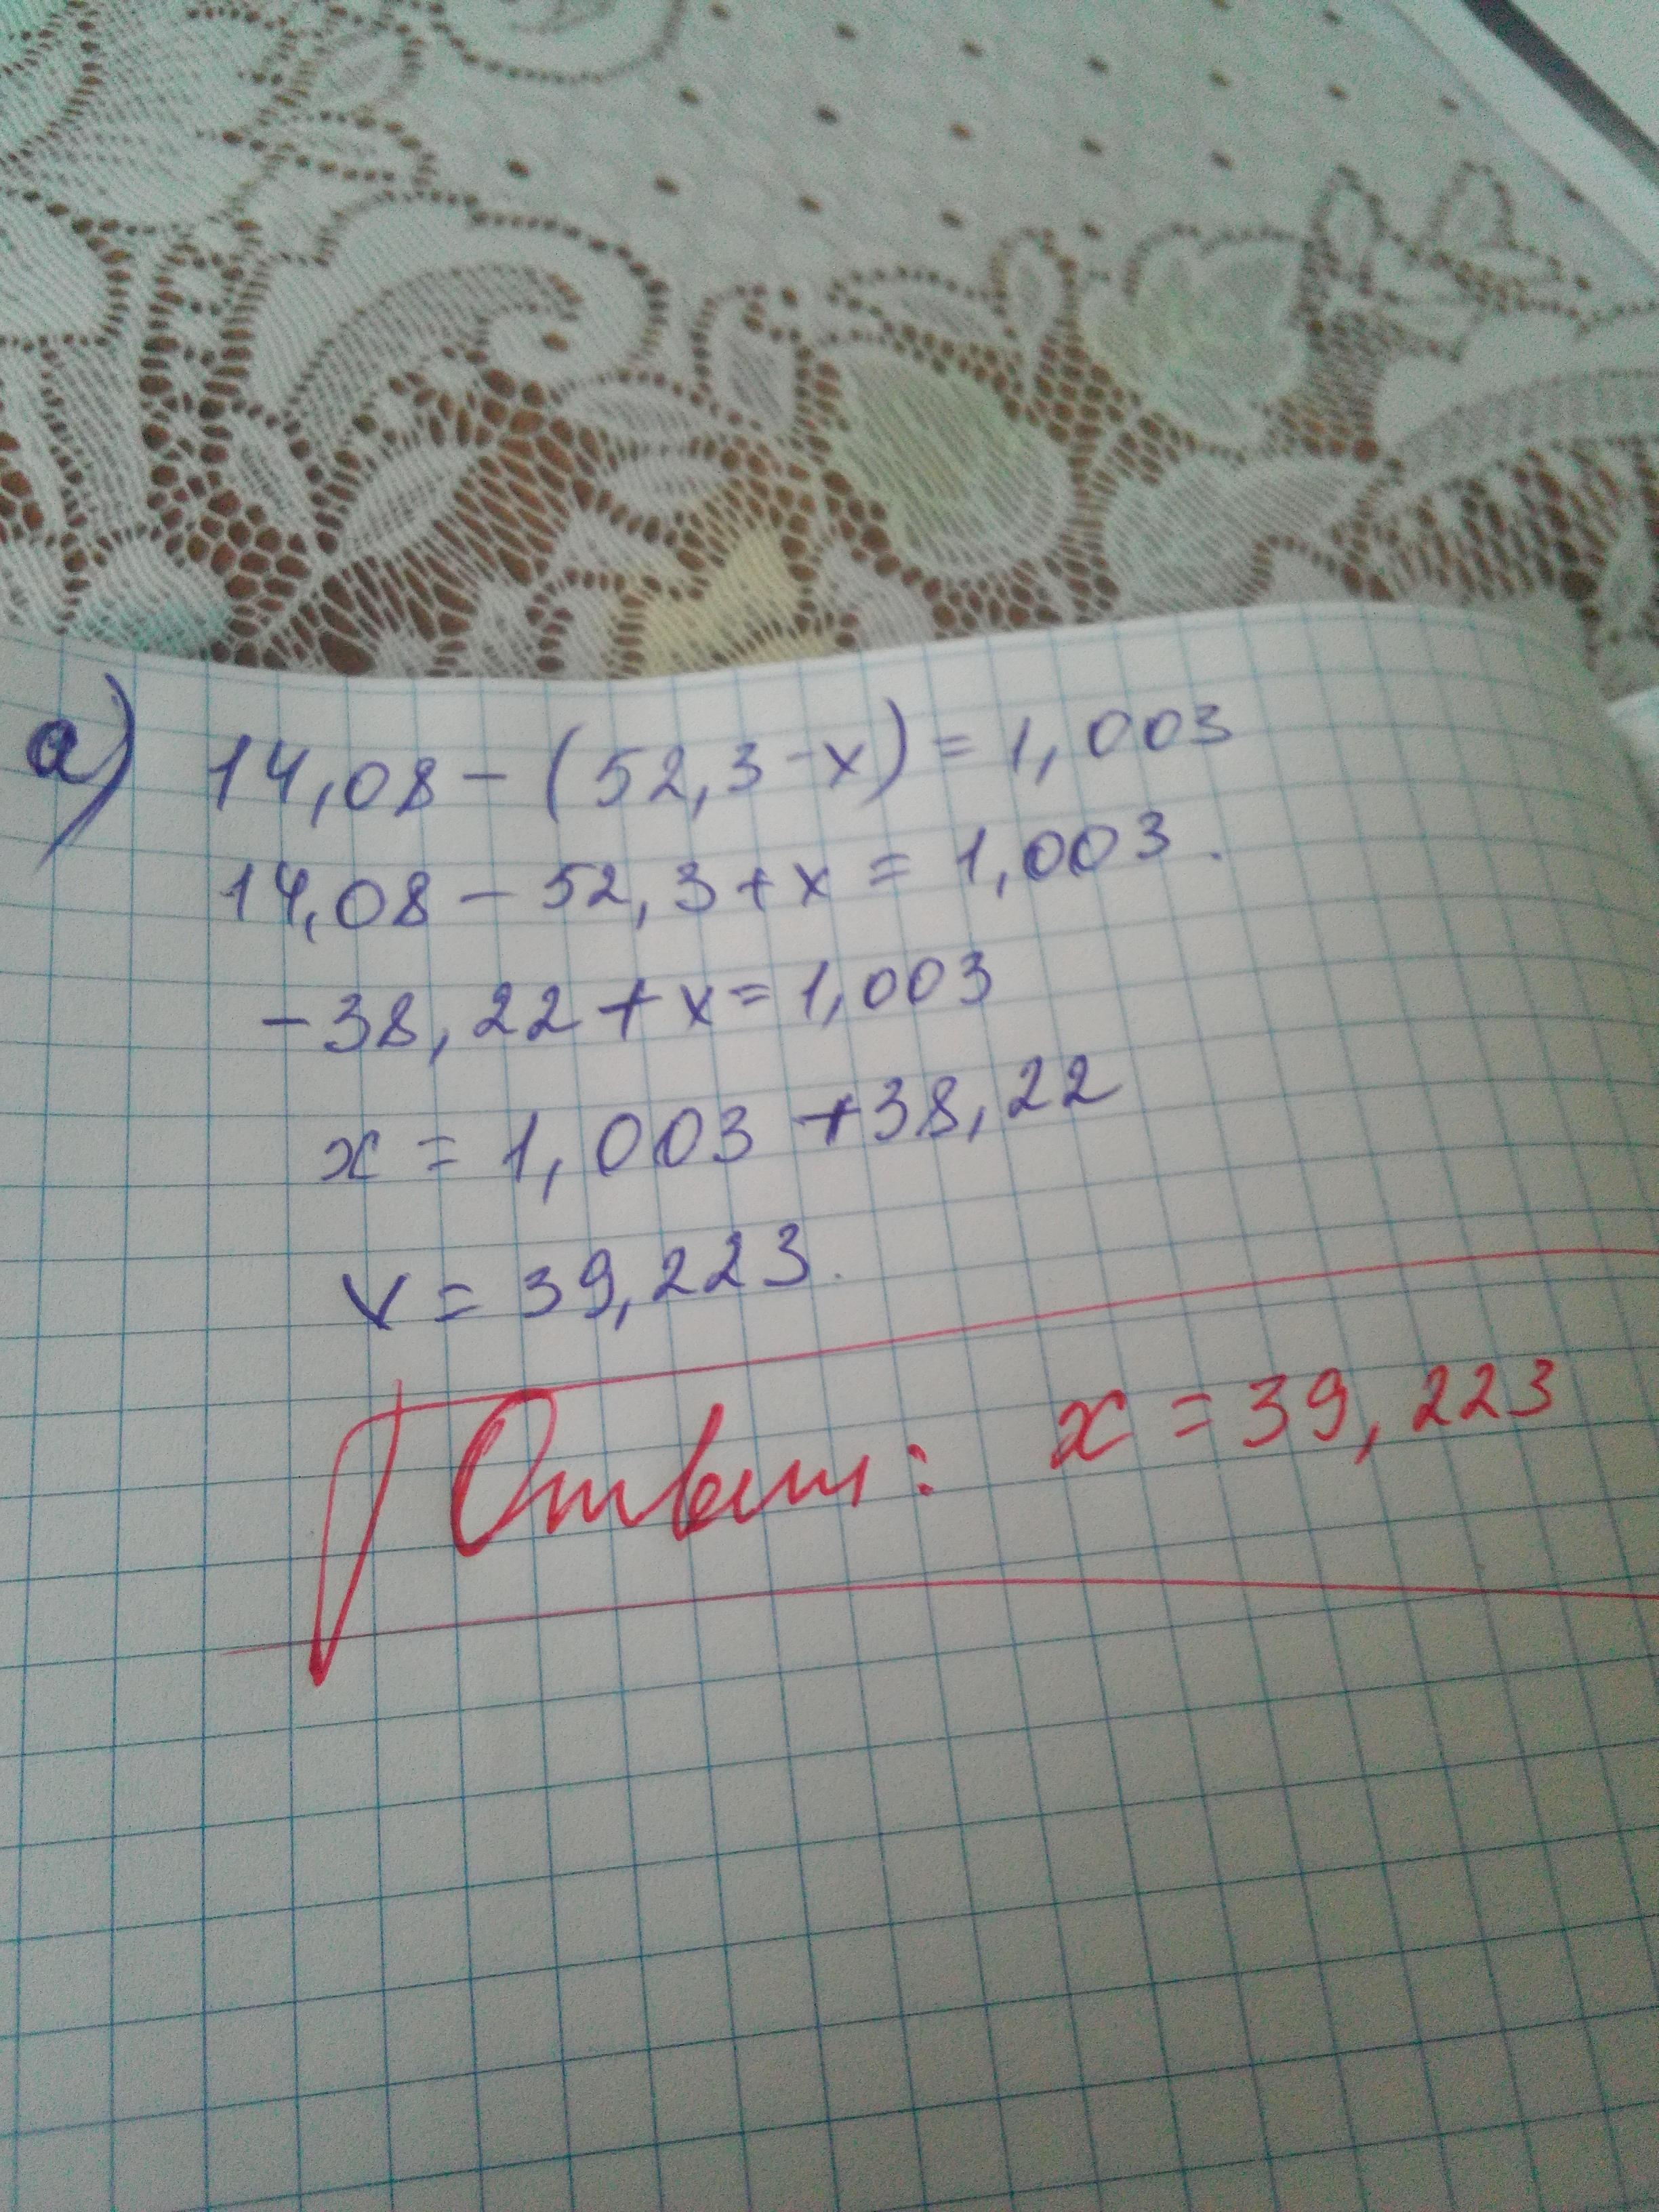 а) 14,08 - (52,3 - x) = 1,003
14,08 - 52,3 + x = 1,003.
- 38,22 + x = 1,003
x = 1,003 + 38,22
x = 39,223.
Ответ: x = 39,223